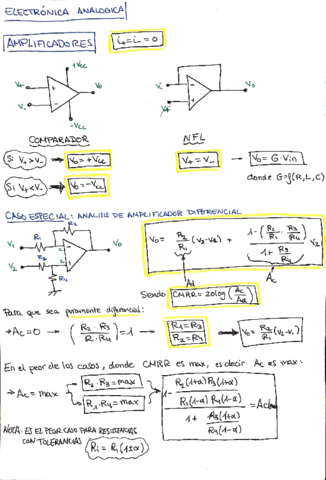 ELECTRÓNICA ANALOGICA
AMPLIFICADORES
i+ = i- = 0
+Vcc
V+
V-
Vo
-Vcc
Vo
V+
COMPARADOR
NFL
Si V+ > V- → Vo = +Vcc
V+ = V- → Vo = G·Vin
donde G = f(R, L, C)
Si V+ < V- → Vo = -Vcc
CASO ESPECIAL: ANALISIS DE AMPLIFICADOR DIFERENCIAL
R2
V1
R1
V2
R3
R4
Vo
Ad
Ac
Siendo CMRR = 20log(Ac/Ad)
Para que sea puramente diferencial:
→ Ac = 0 → (R2·R3/R1·R4) = 1 → R1 = R3
R2 = R4
→ Vo = R2/R1 (V2 - V1)
En el peor de los casos, donde CMRR es max, es decir Ac es max:
→ Ac = max
R2·R3 = max
R1·R4 = max
1 - R2(1+α)R3(1+α) / R1(1-α)R4(1-α)
1 + R3(1+α) / R4(1-α)
NOTA: ES EL PEOR CASO PARA RESISTENCIAS
CON TOLERANCIAS Ri = Ri(1±α)